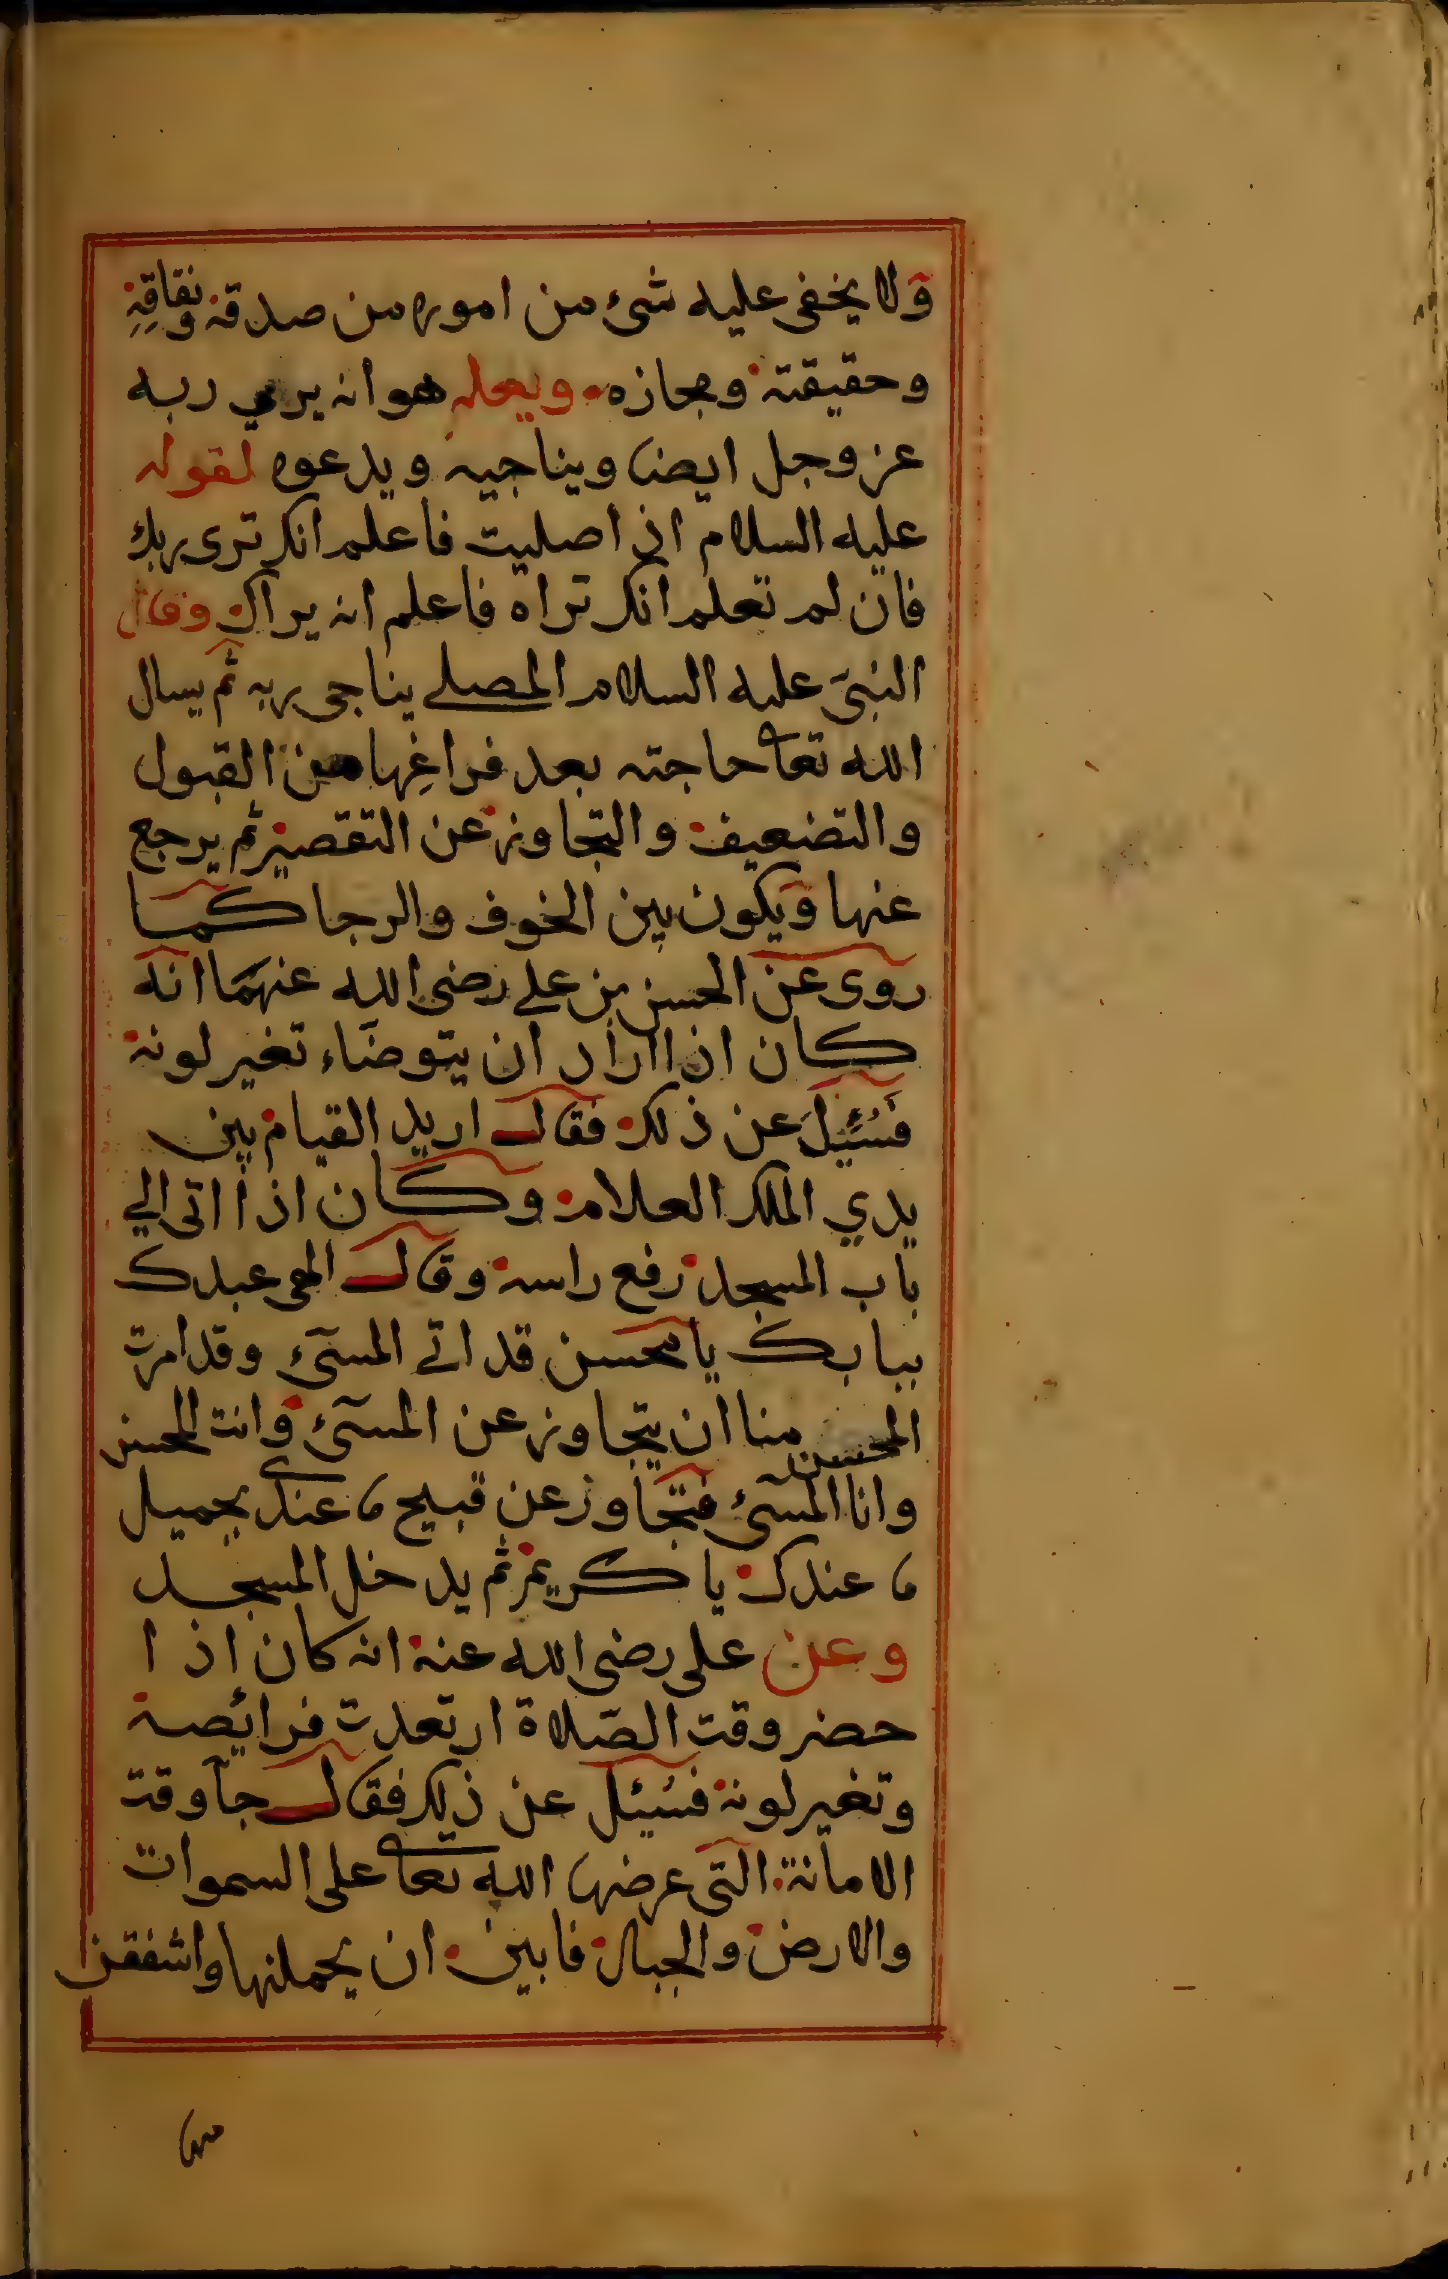 ولا يخفى عليه شئ من اموره من صدقه ونفاقه
وحقيقته ومجازه ويعلم هو انه يرى ربه
عز وجل ايضا ويناجيه ويدعوه لقوله
عليه السلام اذا صليت فاعلم انك ترى ربك
فان لم تعلم انك تراه فاعلم انه يراك وقال
النبى عليه السلام المصلے يناجى ربه ثم يسال
الله تعا حاجته بعد فراغها من القبول
والتضعيف والتجاوز عن التقصير ثم يرجع
عنها ويكون بين الخوف والرجا كما
روى عن الحسن بن علے رضى الله عنهما انه
كان اذا اراد ان يتوضاء تغير لونه
فسُئِلَ عن ذلك فقال اريد القيام بين
يدي الملك العلام وكان اذا اتى الي
باب المسجد رفع راسه وقال الهى عبدك
ببابك يا محسن قد اتے المسىء وقد امرت
المحسن منا ان يتجاوز عن المسئ وانت المحسن
وانا المسئ فتجاوز عن قبيح ما عندى بجميل
ما عندك يا كريم ثم يدخل المسجد
وعن على رضى الله عنه انه كان اذا
حضر وقت الصّلاة ارتعدت فرائصه
وتغير لونه فسُئل عن ذلك فقال جآ وقت
الامانة التى عرضها الله تعا على السموات
والارض والجبال فابين ان يحملنها واشفقن
منها